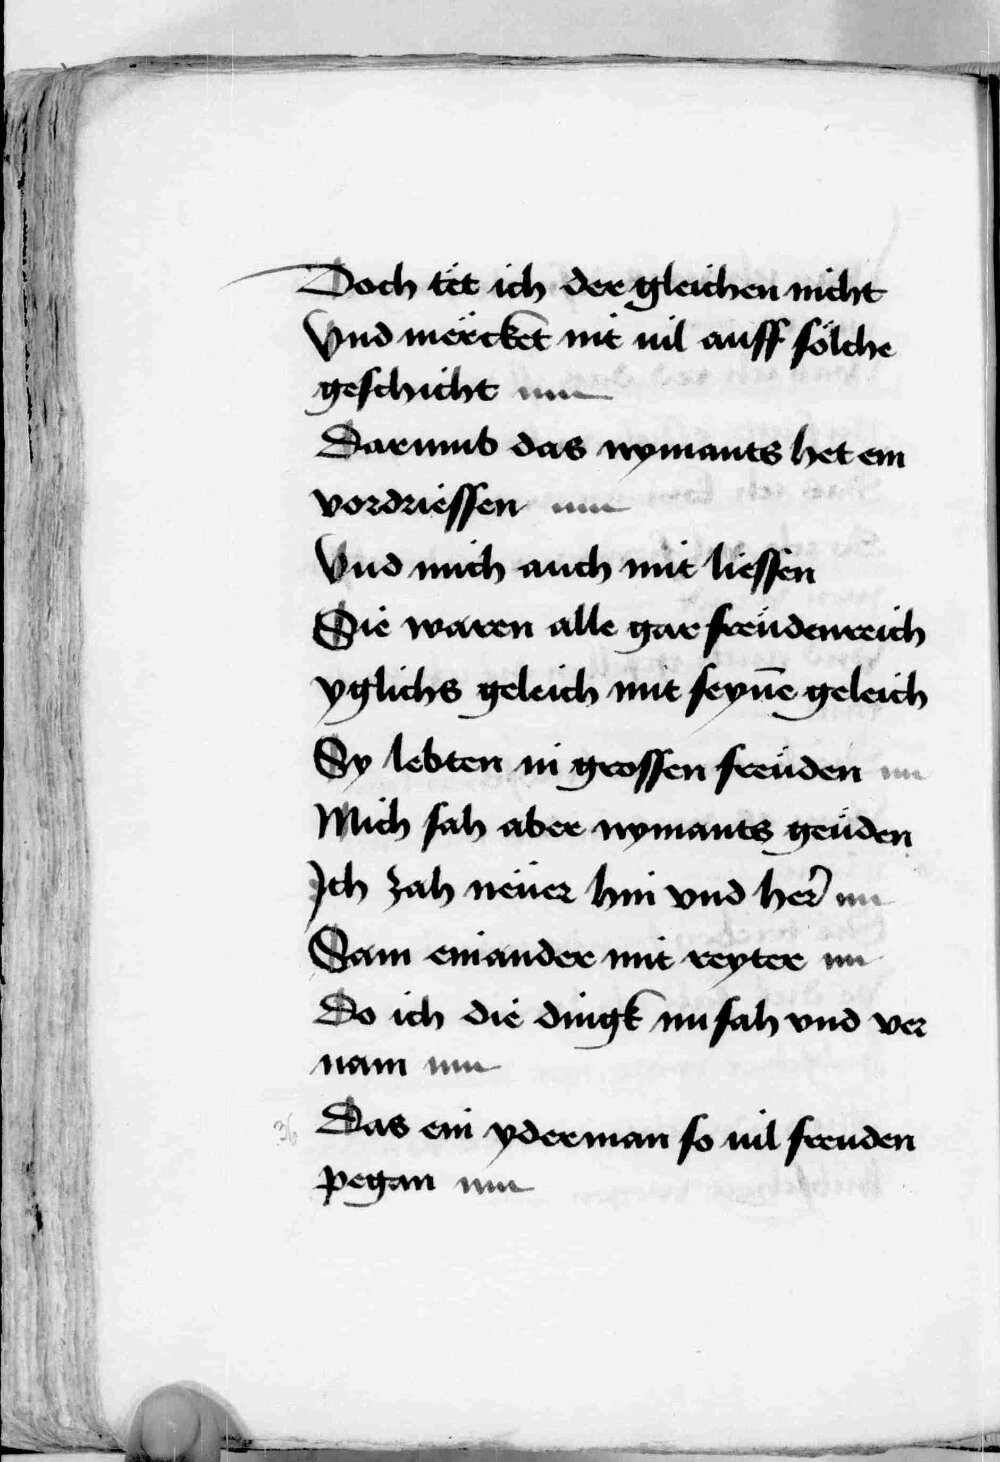 Doch tët ich der gleichen nicht
Vnd mërcket nit uil auff sölche
geschicht
Darumb das nymants het ein
vordriessen
Vnd mich auch mit liessen
Sie waren alle gar freüdenreich
yglichs geleich mit seyne̅ geleich
Sy lebten in grossen freüden
Mich sah aber nymants geüden
Ich zah neüer hin vnd her
Sam einander mit reyter
Do ich die dingk nu sah vnd ver
nam
36
Das ein yderman so uil freuden
pegan